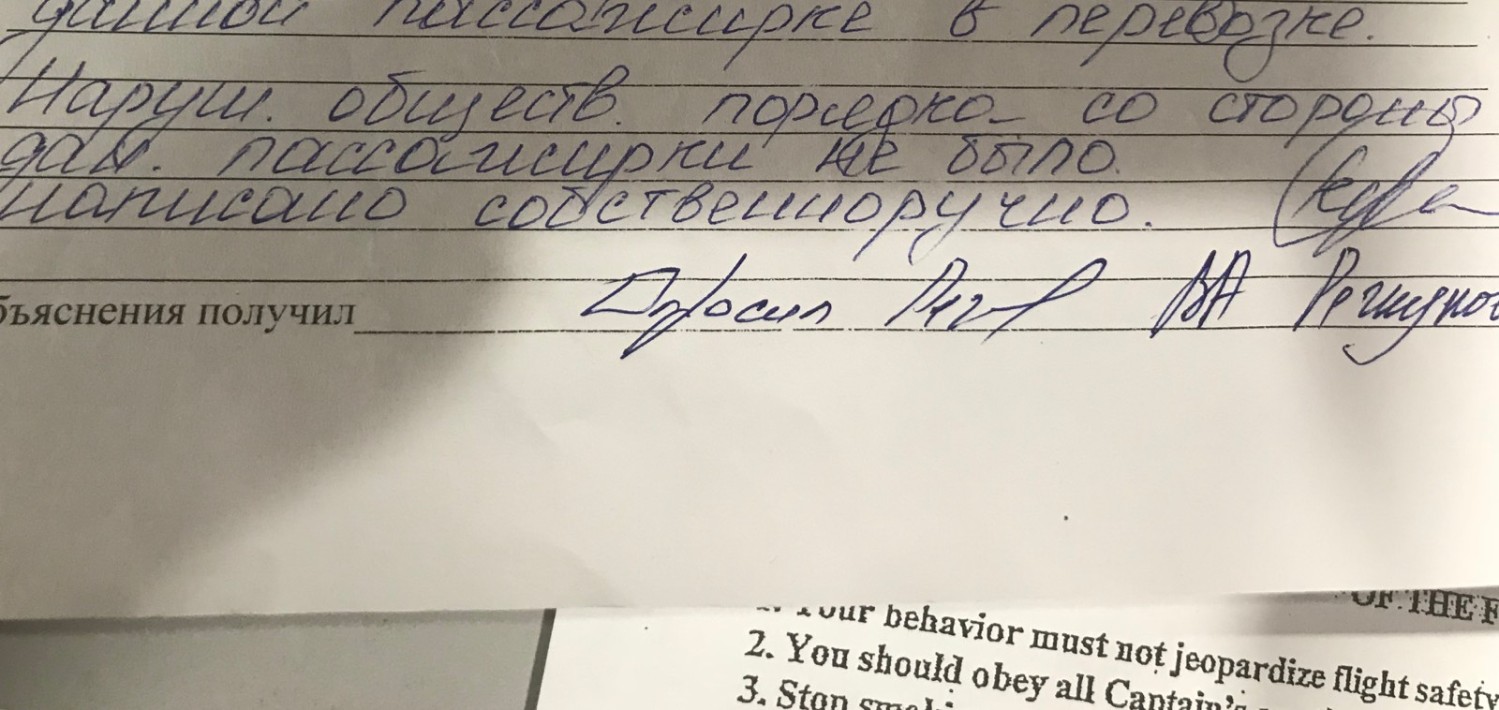 данной пассажирке в перевозке.
Наруш. обществ. порядка со стороны
дан. пассажирки не было.
написано собственноручно.
бъяснения получил В.А
OF THE F
1. Your behavior must not jeopardize flight safety
2. You should obey all Captain's
3. Stop smoki